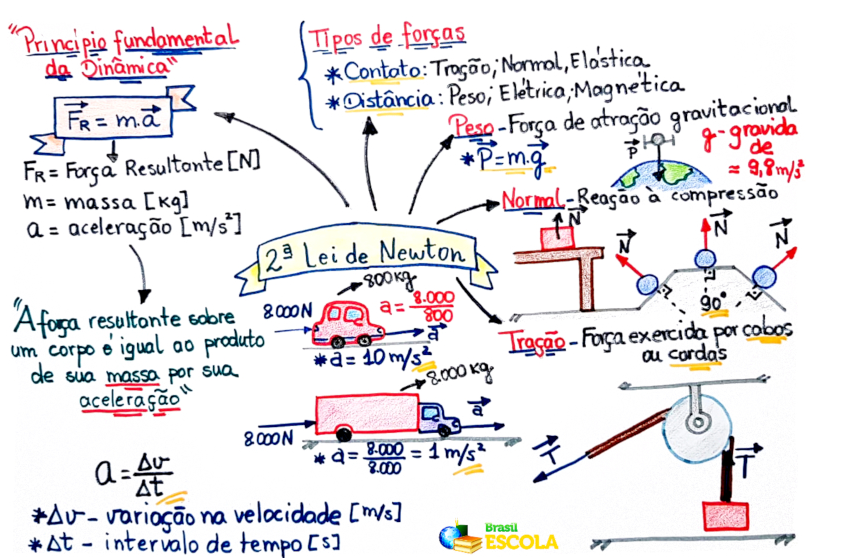 "Princípio fundamental
da Dinâmica"
F_R = m.a
F_R = Força Resultante [N]
m = massa [kg]
a = aceleração [m/s²]
"A força resultante sobre
um corpo é igual ao produto
de sua massa por sua
aceleração"
a = Δv/Δt
*Δv - variação na velocidade [m/s]
*Δt - intervalo de tempo [s]
Tipos de forças
*Contato: Tração; Normal, Elástica
*Distância: Peso; Elétrica; Magnética
Peso - Força de atração gravitacional
*P = m.g
P
g - gravida
de
≈ 9,8 m/s²
Normal - Reação à compressão
N
N
N
N
90°
2ª Lei de Newton
800 kg
8.000N
a = 8.000/800
a
*a = 10 m/s²
8.000 kg
8.000N
a
*a = 8.000/8.000 = 1 m/s²
Tração - Força exercida por cabos
ou cordas
T
T
Brasil
ESCOLA